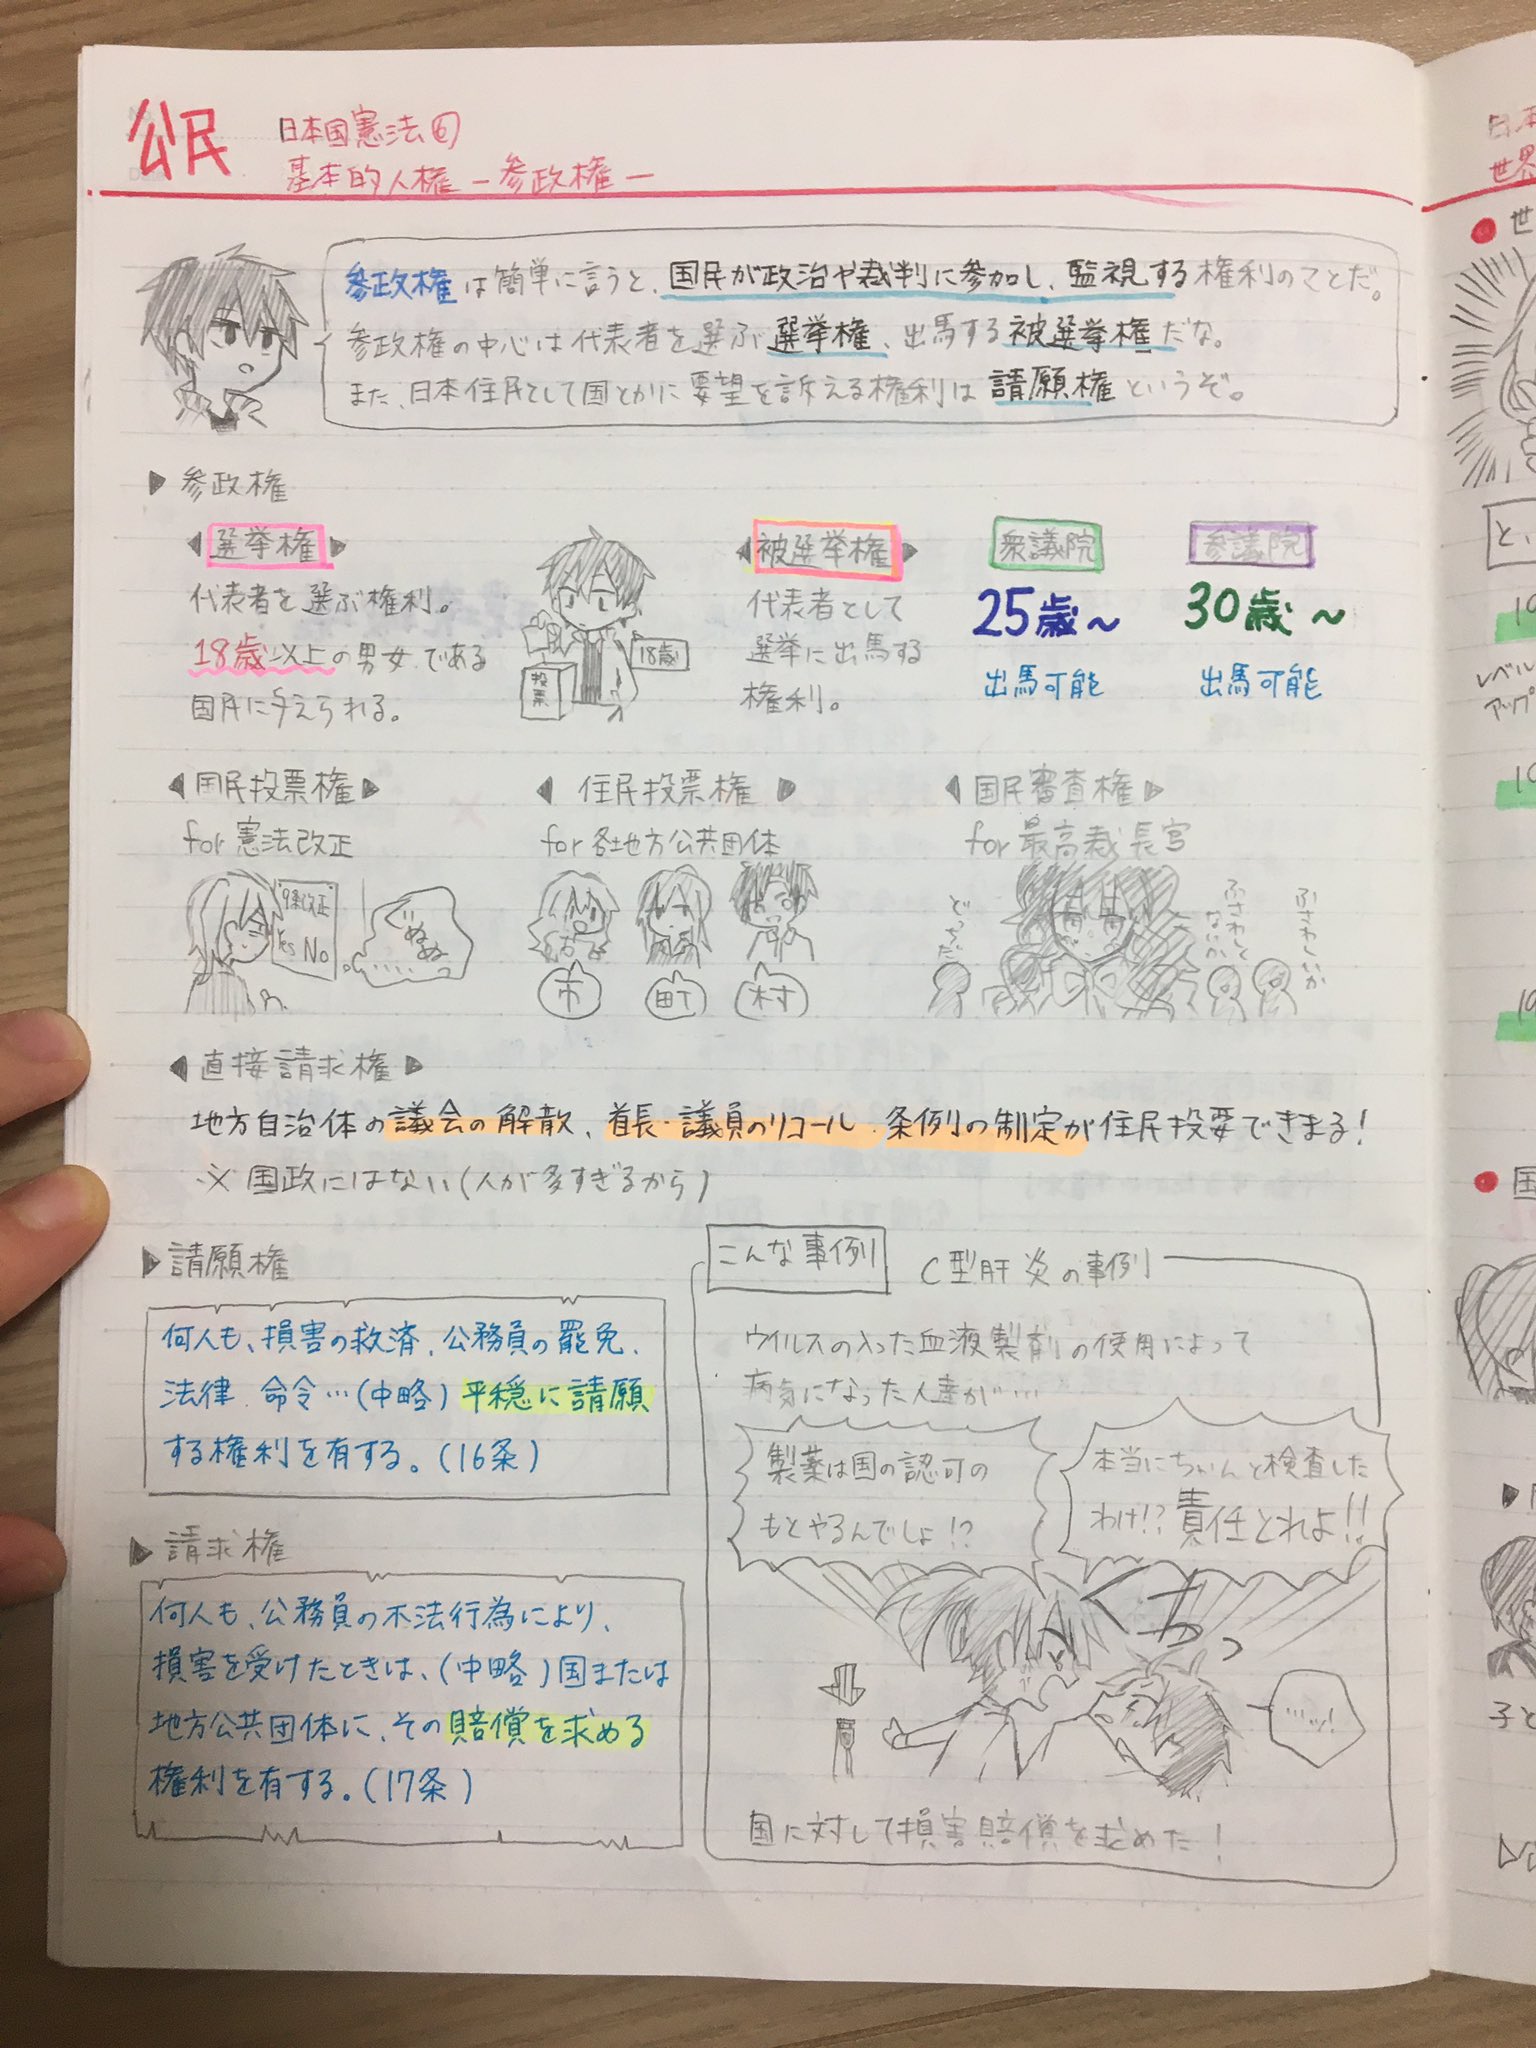 公民
日本国憲法⑥
基本的人権－参政権－
参政権は簡単に言うと、国民が政治や裁判に参加し、監視する権利のことだ。
参政権の中心は代表者を選ぶ選挙権、出馬する被選挙権だな。
また、日本住民として国とかに要望を訴える権利は請願権というぞ。
▶参政権
選挙権
代表者を選ぶ権利。
18歳以上の男女である
国民に与えられる。
投票
18歳
被選挙権
代表者として
選挙に出馬する
権利。
衆議院
25歳～
出馬可能
参議院
30歳～
出馬可能
国民投票権
for 憲法改正
9条改正
Yes No
ぐぬぬ
住民投票権
for 各地方公共団体
市
町
村
国民審査権
for 最高裁長官
どっちだ
ふさわしく
ないか
ふさわしいか
直接請求権
地方自治体の議会の解散、首長・議員のリコール、条例の制定が住民投票できまる！
※国政にはない(人が多すぎるから)
▶請願権
何人も、損害の救済、公務員の罷免、
法律、命令…(中略)平穏に請願
する権利を有する。(16条)
▶請求権
何人も、公務員の不法行為により、
損害を受けたときは、(中略)国または
地方公共団体に、その賠償を求める
権利を有する。(17条)
こんな事例
C型肝炎の事例
ウイルスの入った血液製剤の使用によって
病気になった人達が…
製薬は国の認可の
もとやるんでしょ!?
本当にちゃんと検査した
わけ!?責任とれよ!!
国
……ッ!
国に対して損害賠償を求めた！
日本
世界
世
と、
19
レベル
アップ
19
19
国
子と